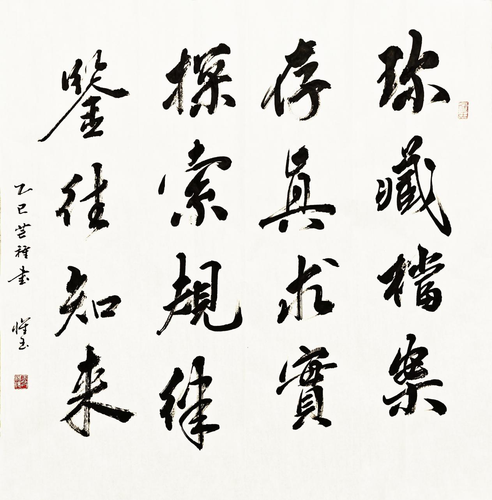 珎藏檔案
存真求實
探索規律
鑒往知来
乙巳芒種書